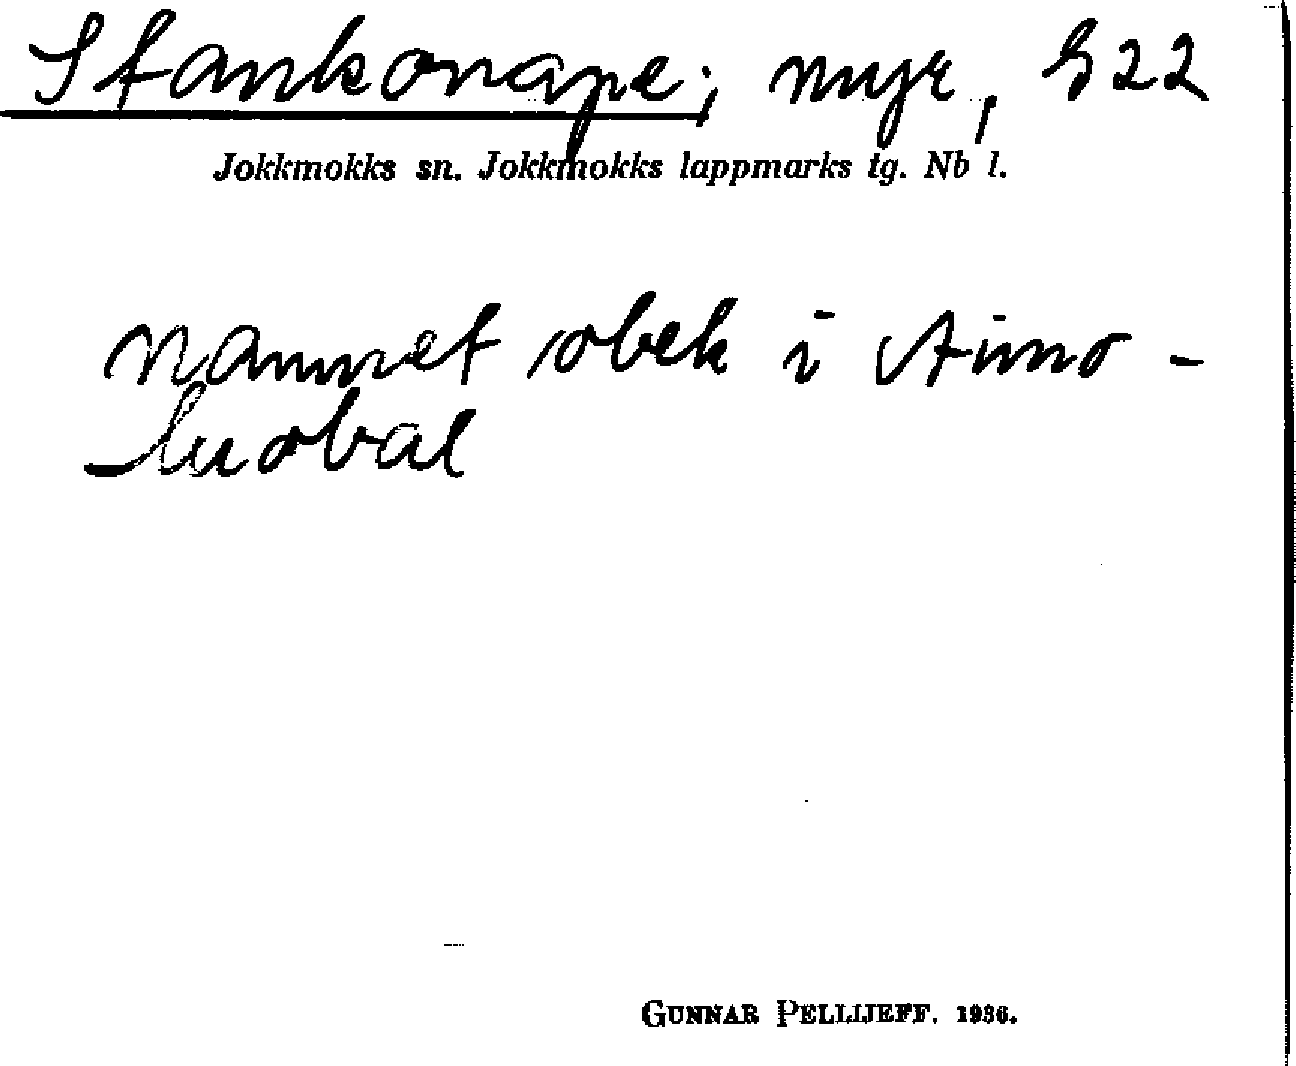 Stankonape; myr, G22
Jokkmokks sn. Jokkmokks lappmarks tg. Nb l.
namnet obek i Aimo -
luobal
GUNNAR PELLIJEFF. 1936.